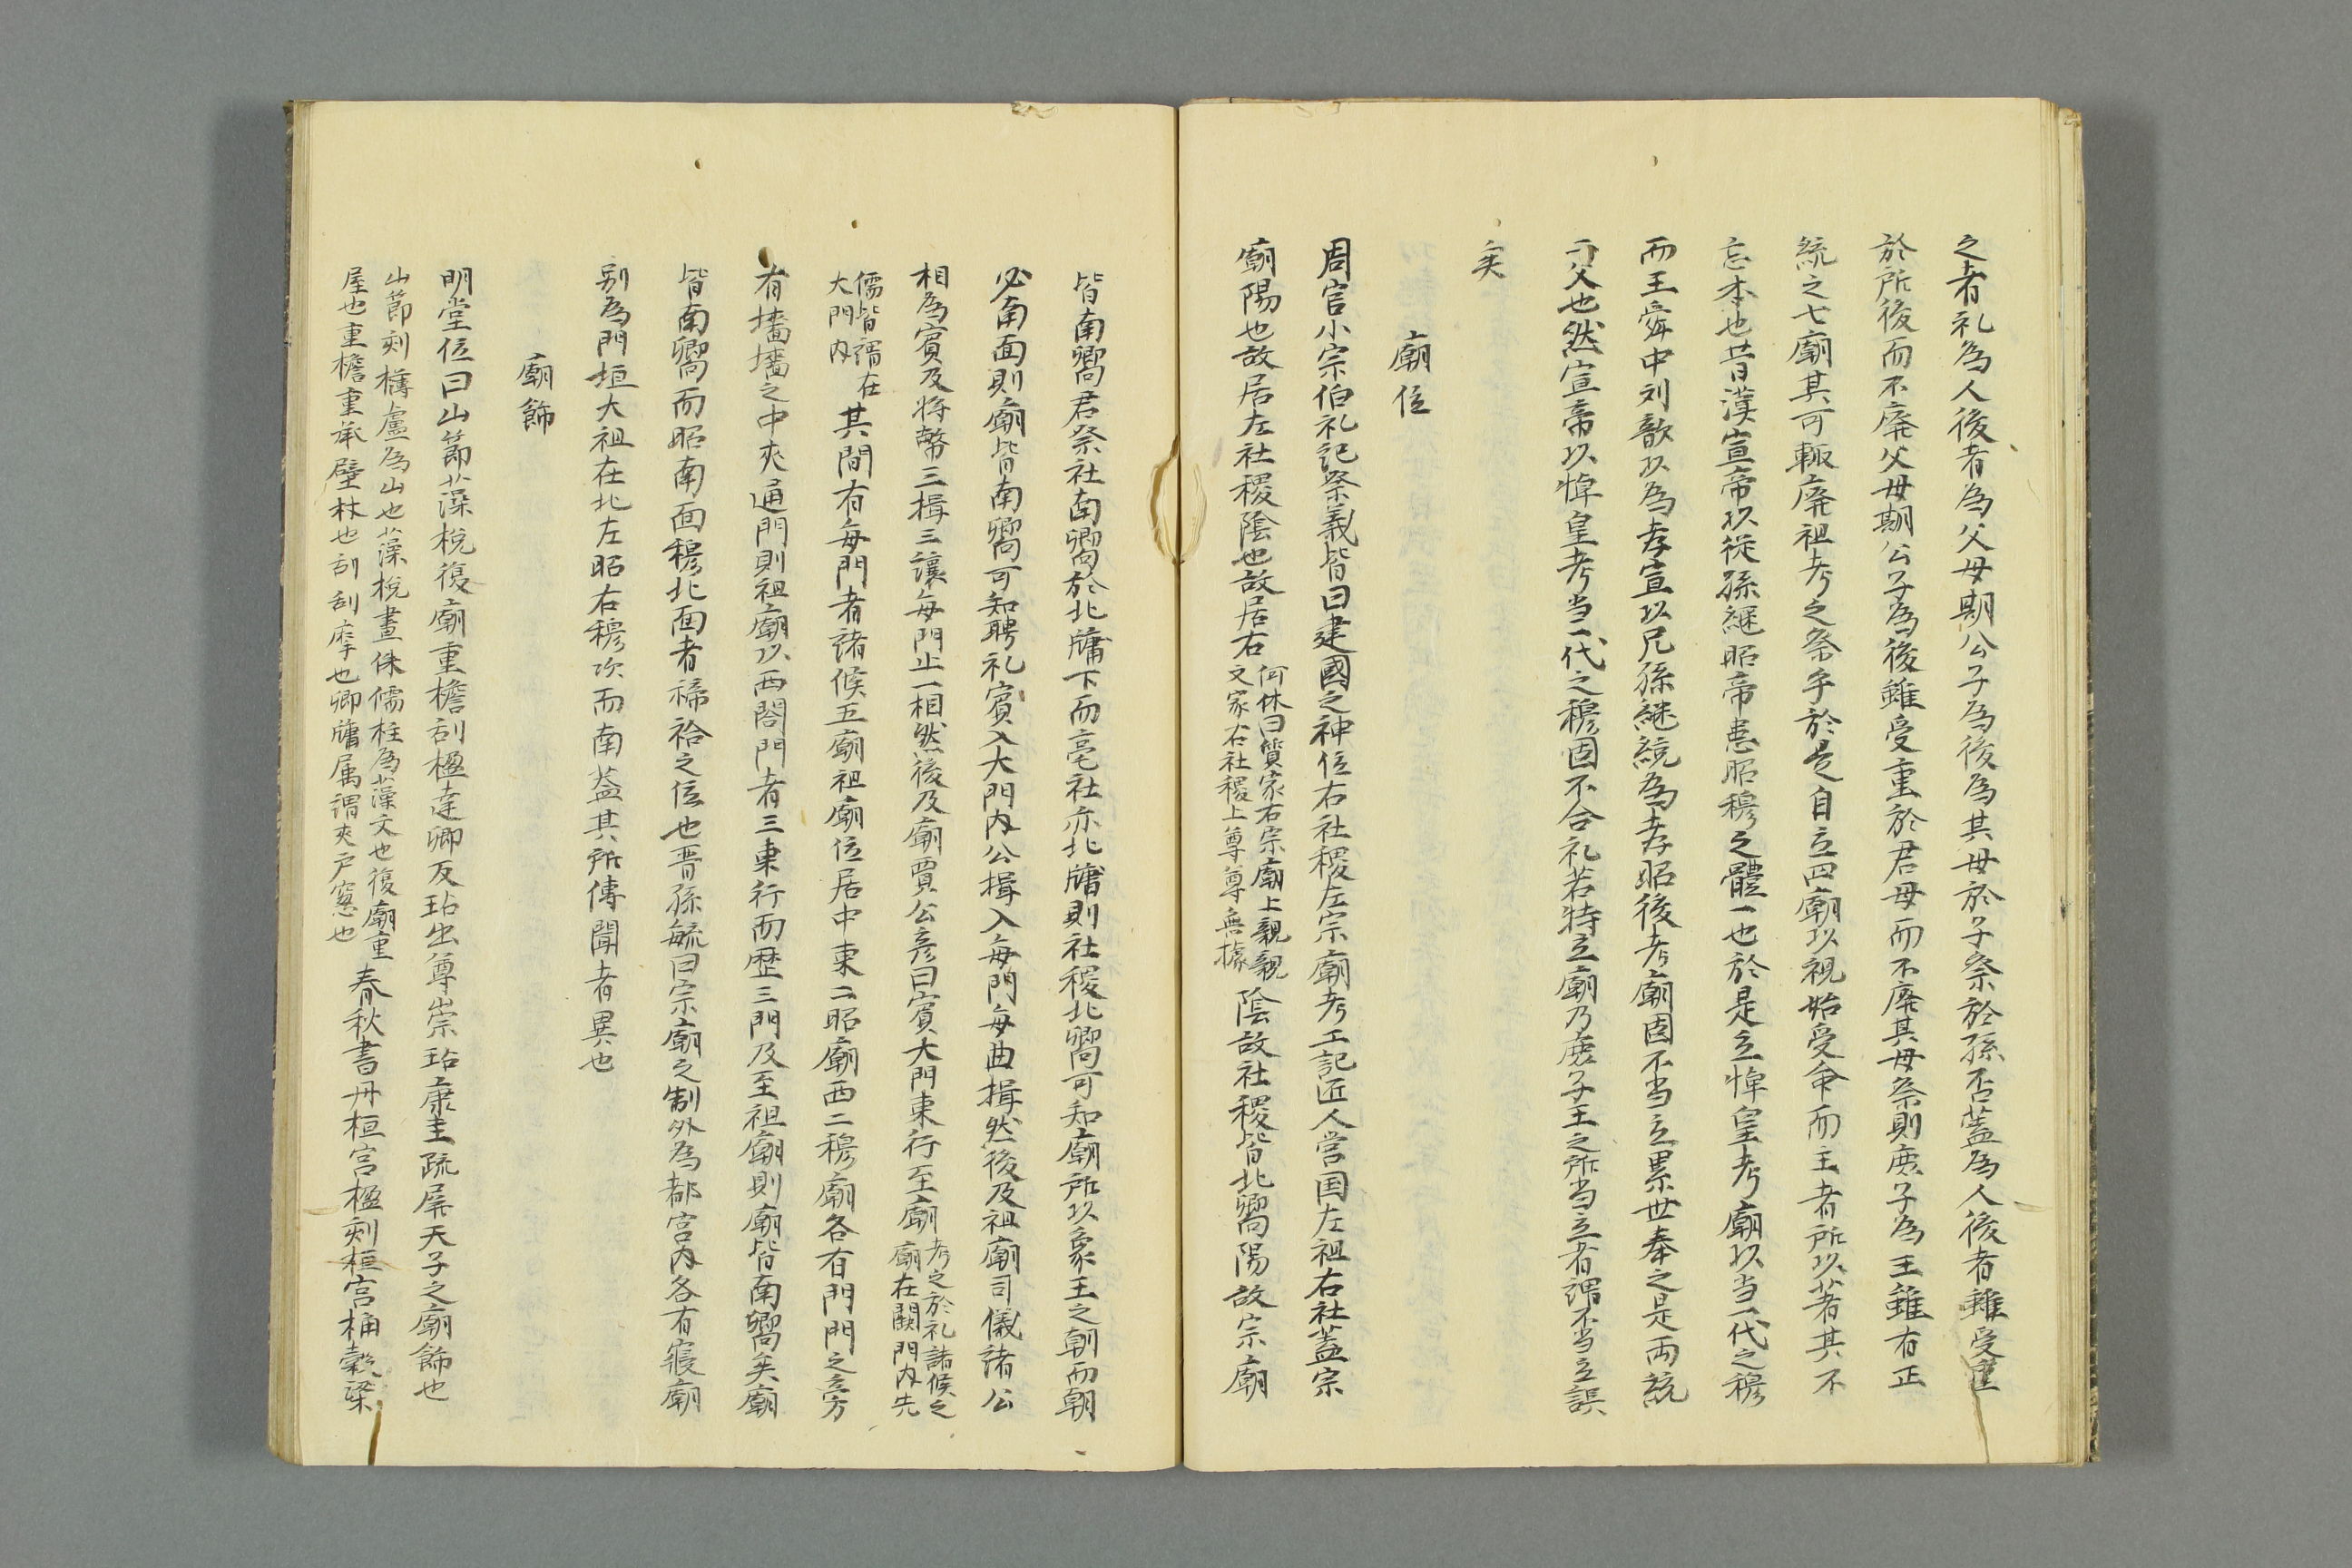 之者礼為人後者為父母期公子為後為其母於子祭於孫否蓋為人後者雖受重
於所後而不廃父母期公子為後雖受重於君母而不廃其母祭則庶子為王雖有正
統之七廟其可輙廃祖考之祭乎於是自立四廟以視始受命而王者所以著其不
忘本也昔漢宣帝以從孫継昭帝患昭穆之體一也於是立悼皇考廟以当一代之穆
而王舜中刘歆以為孝宣以兄孫継統為孝昭後考廟固不当立累世奉之是両統
二父也然宣帝以悼皇考当一代之穆固不合礼若特立廟乃庶子王之所当立者謂不当立誤
矣
廟位
周官小宗伯礼記祭義皆曰建國之神位右社稷左宗廟考工記匠人営国左祖右社蓋宗
廟陽也故居左社稷陰也故居右
何休曰質家右宗廟上親親
文家右社稷上尊尊無據
陰故社稷皆北嚮陽故宗廟
皆南嚮君祭社南嚮於北牖下而亳社亦北牖則社稷北嚮可知廟所以象王之朝而朝
必南面則廟皆南嚮可知聘礼賓入大門内公揖入毎門毎曲揖然後及祖廟司儀諸公
相為賓及将幣三揖三讓毎門止一相然後及廟賈公彦曰賓大門東行至廟
考之於礼諸侯之
廟在闕門内先
儒皆謂在
大門内
其間有毎門者諸候五廟祖廟位居中東二昭廟西二穆廟各有門門之旁
有墻墻之中夾通門則祖廟以西閤門者三東行而歴三門及至祖廟則廟皆南嚮矣廟
皆南嚮而昭南面穆北面者禘祫之位也晋孫毓曰宗廟之制外為都宮内各有寢廟
别為門垣大祖在北左昭右穆次而南葢其所傳聞者異也
廟飾
明堂位曰山節藻梲復廟重檐刮楹達卿反坫出尊崇坫康圭疏屏天子之廟飾也
山節刻欂盧為山也藻梲畫侏儒柱為藻文也復廟重
屋也重檐重承壁材也刮刮摩也卿牖属謂夾戸窓也
春秋書丹桓宮楹刻桓宮桷穀梁